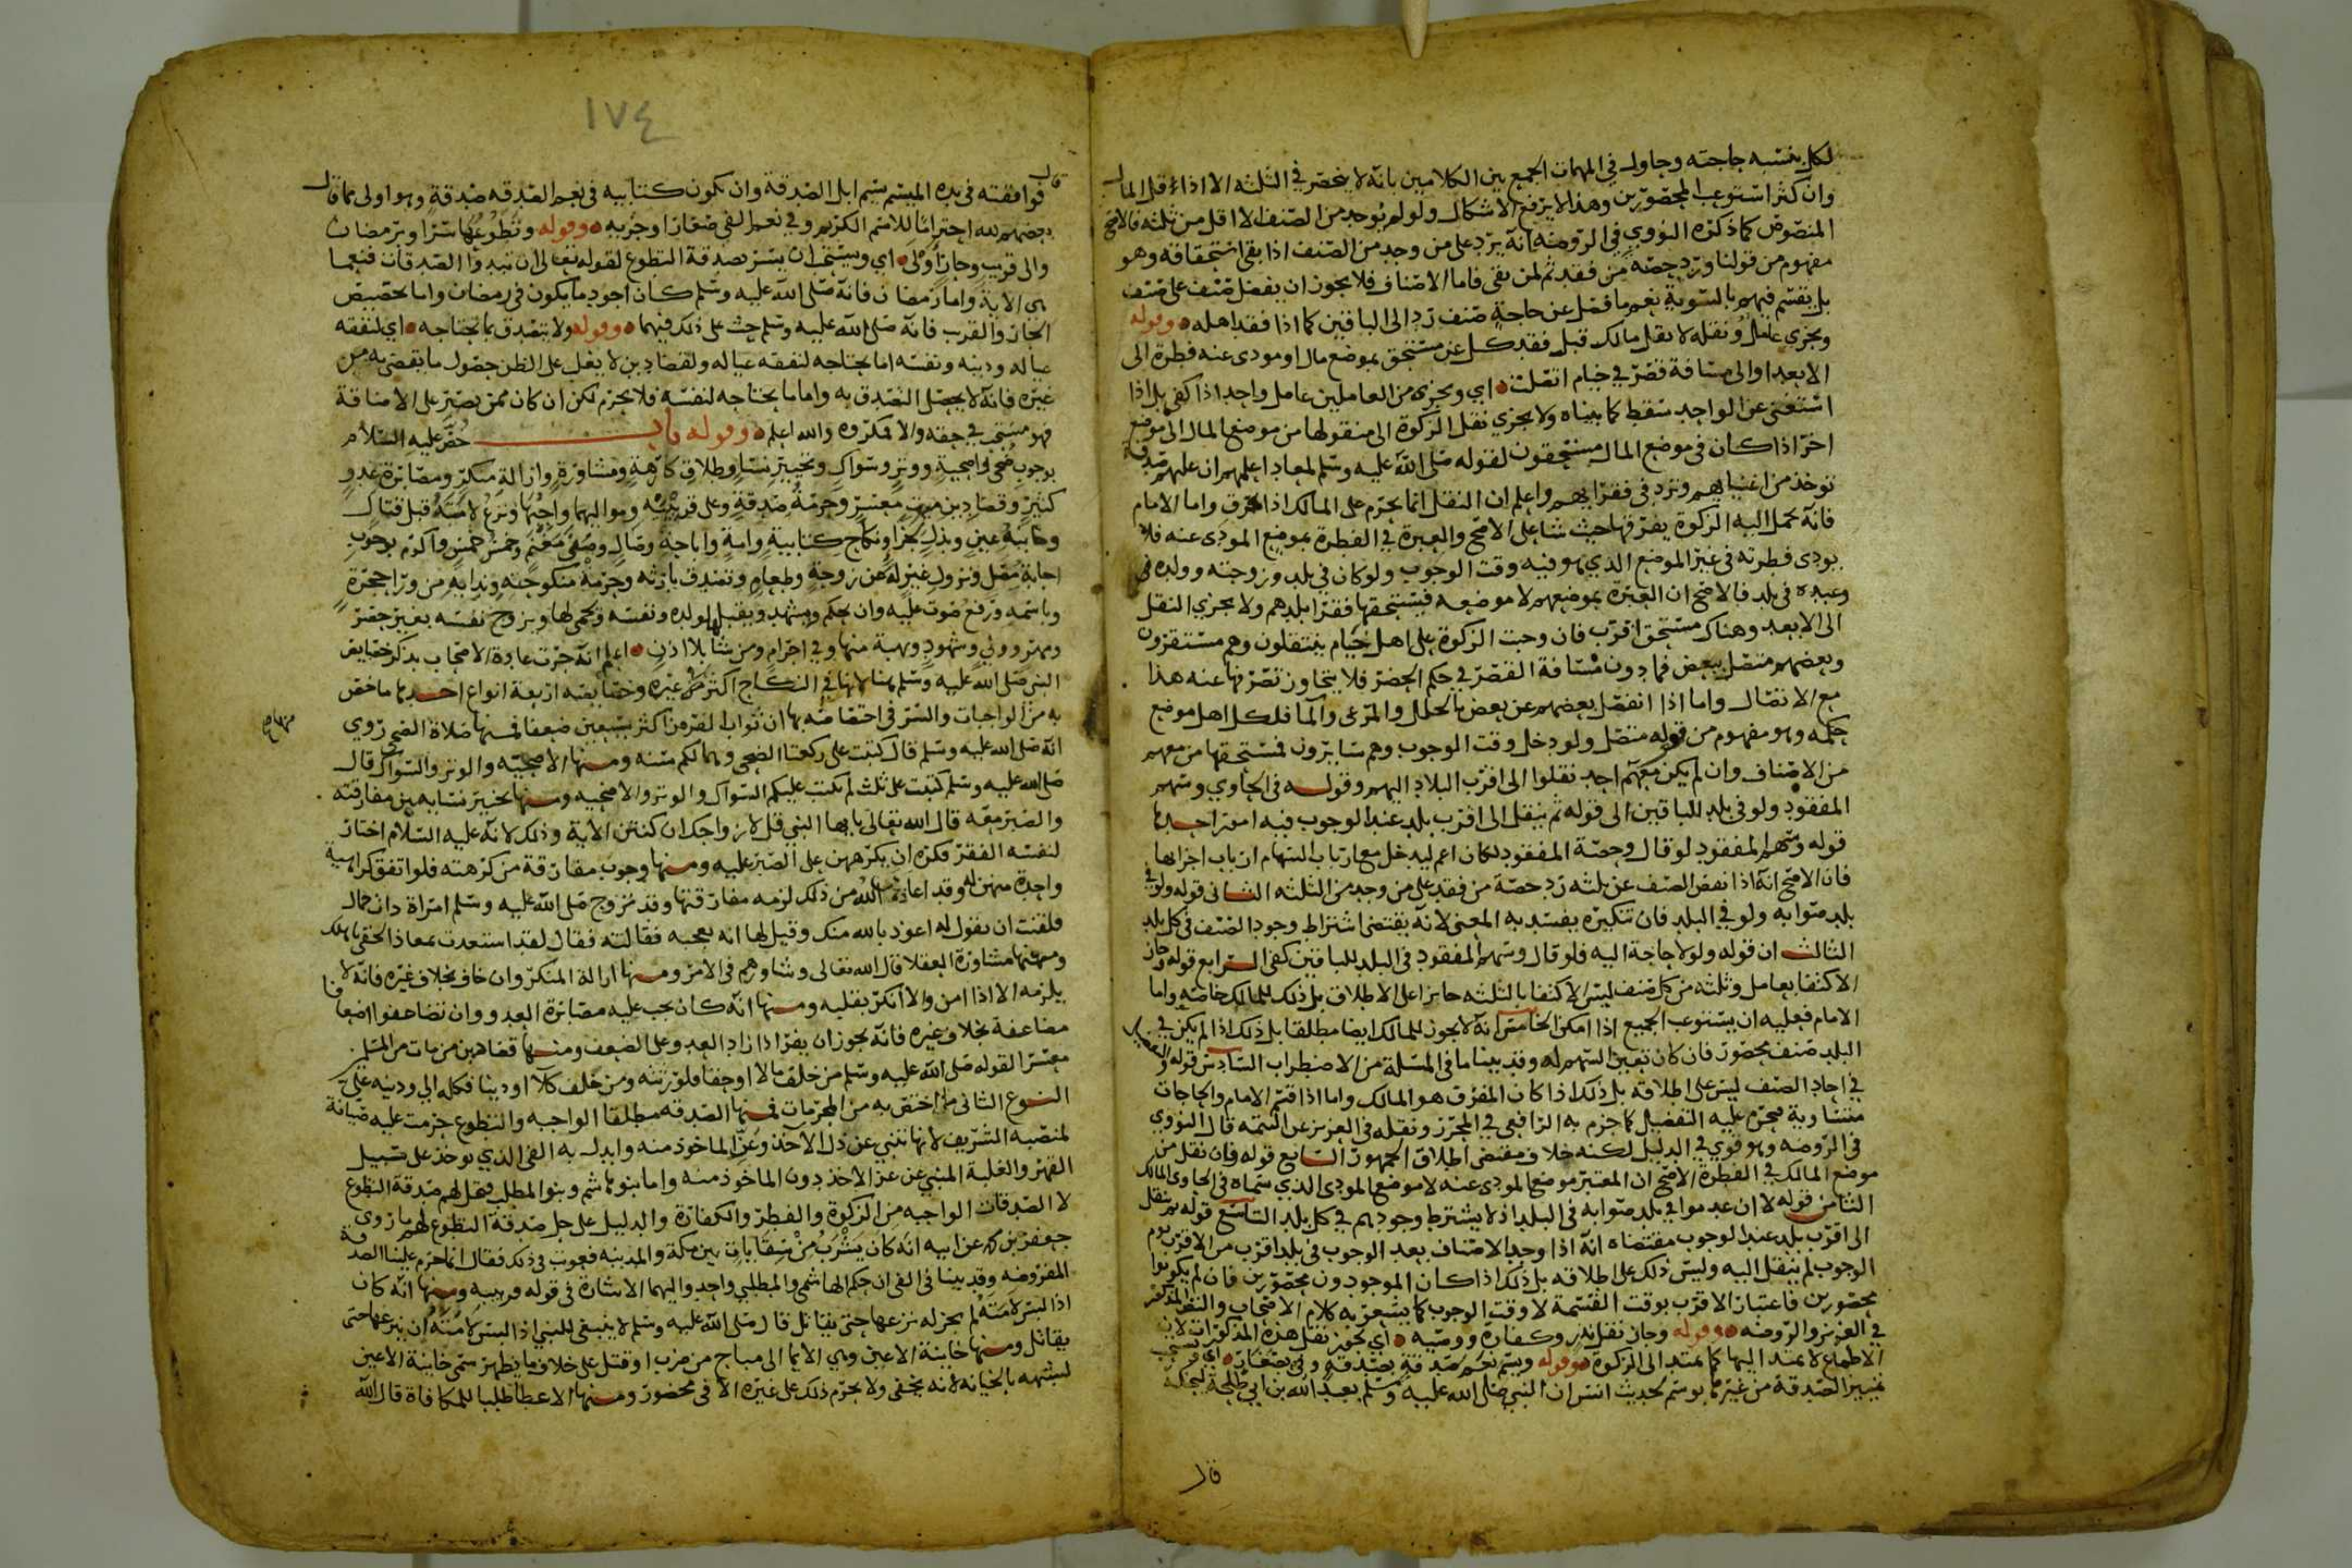 لكل بنسبة حاجته وحاول في المهمات الجمع بين الكلامين بانه لا ينحصر في الثلثه الا اذا قل المال
وان كثر استوعب المحصورين وهذا لا يرفع الاشكال ولو لم يوجد من الصنف الا اقل من ثلثه فالاصح
المنصوص كما ذكره النووي في الروضه انه يرد على من وجد من الصنف اذا بقي استحقاقه وهو
مفهوم من قولنا ورد حصة من فقد ثم لمن بقي فاما الاصناف فلا يجوز ان يفضل صنف على صنف
بل يقسم فيهم بالسوية نعم ما فضل عن حاجة صنف رد الى الباقين كما اذا فقد اهله وقوله
ويجزي عامل ونقله لا بقل مالك قبل فقد كل عن مستحق بموضع مال او مودى عنه فطرة الى
الابعد او الى مسافة قصر في خيام اتصلت اي ويجزي من العاملين عامل واحد اذا كفى بل اذا
استغنى عن الواحد سقط كما بيناه ولا يجزي نقل الزكوة الى منقولها من موضع المال الى موضع
اخر اذا كان في موضع المال مستحقون لقوله صلى الله عليه وسلم لمعاد اعلمهم ان عليهم صدقة
توخذ من اغنيايهم وترد في فقرايهم واعلم ان النقل انما يحرم على المالك اذا فرق واما الامام
فانه تحمل اليه الزكوة يفرقها حيث شا على الاصح والعبرة في الفطرة بموضع المودى عنه فلا
يودى فطرته في غير الموضع الذي هو فيه وقت الوجوب ولو كان في بلد وزوجته وولده في
وعبده في بلد فالاصح ان العبرة بموضعهم لا موضعه فيستحقها فقرا بلدهم ولا يجزي النقل
الى الابعد وهناك مستحق اقرب فان وجبت الزكوة على اهل خيام ينتقلون وهم مستقرون
وبعضهم متصل ببعض فما دون مسافة القصر في حكم الحضر فلا يتجاوز تصرفها عنه هذا
مع الاتصال واما اذا انفصل بعضهم عن بعض بالحلل والمرعى والما فلكل اهل موضع
حكمه وهو مفهوم من قوله متصل ولو دخل وقت الوجوب وهم سايرون فمستحقها من معهم
من الاصناف وان لم يكن معهم احد نقلوا الى اقرب البلاد اليهم وقوله في الحاوي وسهم
المفقود ولو في بلد للباقين الى قوله ثم ينقل الى اقرب بلد عند الوجوب فيه امور احدها
قوله وسهم المفقود لو قال وحصة المفقود لكان اعم ليدخل مع ارباب السهام ارباب اجزايها
فان الاصح انه اذا نقص الصنف عن ثلثه رد حصة من فقد على من وجد من الثلثه الثاني قوله ولو في
بلد صوابه ولو في البلد فان تنكيره يفسد به المعنى لانه يقتضي اشتراط وجود الصنف في كل بلد
الثالث ان قوله ولو لا حاجة اليه فلو قال وسهم المفقود في البلد للباقين كفى الرابع قوله وجاز
الاكتفا بعامل وثلثه من كل صنف ليس الاكتفا بالثلثه جايزا على الاطلاق بل ذلك للمالك خاصه واما
الامام فعليه ان يستوعب الجميع اذا امكن الخامس انه لا يجوز للمالك ايضا مطلقا بل ذلك اذا لم يكن في
البلد صنف محصور فان كان تعين السهم له وقد بينا ما في المسئلة من الاضطراب السادس قوله
في احاد الصنف ليس على اطلاقه بل ذلك اذا كان المفرق هو المالك واما اذا قسم الامام والحاجات
متساوية فيحرم عليه التفضيل كما جزم به الرافعي في المحرر ونقله في العزيز عن التتمه قال النووي
في الروضه وهو قوي في الدليل لكنه خلاف مقتضى اطلاق الجمهور السابع قوله فان نقل من
موضع المالك في الفطرة الاصح ان المعتبر موضع المودى عنه لا موضع المودي الذي سماه في الحاوي المالك
الثامن قوله لا ان عدموا في بلد صوابه في البلد اذ لا يشترط وجودهم في كل بلد التاسع قوله ثم ينقل
الى اقرب بلد عند الوجوب مقتضاه انه اذا وجد الاصناف بعد الوجوب في بلد اقرب من الاقرب يوم
الوجوب لم ينقل اليه وليس ذلك على اطلاقه بل ذلك اذا كان الموجودون محصورين فان لم يكونوا
محصورين فاعتبار الاقرب بوقت القسمة لا وقت الوجوب كما يشعر به كلام الاصحاب والنقل
في العزيز والروضه وقوله وجاز نقل نذر وكفارة ووصية اي يجوز نقل هذه المذكورات لان
الاطماع لا تمتد اليها كما تمتد الى الزكوة وقوله وسم نعم صدقة بصدقة وفي بصغار
تمييز الصدقة من غيرها بوسم لحديث انس ان النبي صلى الله عليه وسلم بعبد الله بن ابي طلحة ليحنكه
قال
١٧٤
قال
فوافقته في يده الميسم يسم ابل الصدقة وان يكون كتابيه في نعم الصدقه صدقة وهو اولى مما قال
بعضهم لله احتراما للاسم الكريم وفي نعم الفي صغار او جزيه وقوله وتطوعها سرا وبرمضان
والى قريب وجار اولى اي ويستحب ان يسر بصدقة التطوع لقوله تعالى ان تبدوا الصدقات فنعما
هي الاية واما رمضان فانه صلى الله عليه وسلم كان اجود ما يكون في رمضان واما تخصيص
الجار والقرب فانه صلى الله عليه وسلم حث على ذلك فيهما وقوله ولا يتصدق بما يحتاجه اي لنفقه
عياله ودينه ونفسه اما يحتاجه لنفقه عياله ولقضا دين لا يغلب على الظن حصول ما يقضى به من
غيره فانه لا يحصل التصدق به واما ما يحتاجه لنفسه فلا يحرم لكن ان كان ممن يصبر على الاضاقة
فهو مستحب في حقه والا فمكروه والله اعلم وقوله باب خص عليه السلام
بوجوب ضحى واضحية ووتر وسواك وتخيير نسا وطلاق كارهة ومشاورة وازالة منكر ومصابرة عدو
كثير وقضا دين ميت معسر وحرمة صدقة وعلى قريبيه ومواليهما واجبها ونزع لامته قبل قتال
وخاينة عين وبذل لجزا ونكاح كتابية وامة واباحة وصال وصفي مغنم وخمس خمس واكرم بوجوب
اجابة مصل ونزول غير له عن زوجة وطعام وتصدق بارثه وحرمة منكوحته وندايه من ورا حجرة
وباسمه ورفع صوت عليه وان يحكم ويشهد ويقبل لولده ونفسه ويحمي لها ويزوج نفسه بغير حصر
ومهر وولي وشهود وبهبة منها وفي احرام ومن شا بلا اذن اعلم انه جرت عادة الاصحاب بذكر خصايص
النبي صلى الله عليه وسلم هنا لانها في النكاح اكثر من غيره وخصايصه اربعة انواع احدها ما خص
به من الواجبات والسر في اختصاصه بها ان ثواب الفرض اكثر بسبعين ضعفا فمنها صلاة الضحى روي
انه صلى الله عليه وسلم قال كتبت على ركعتا الضحى وهما لكم سنه ومنها الاضحيه والوتر والسواك قال
صلى الله عليه وسلم كتبت على ثلث لم تكتب عليكم السواك والوتر والاضحيه ومنها تخيير نسايه بين مفارقته
والصبر معه قال الله تعالى يايها النبي قل لازواجك ان كنتن الاية وذلك لانه عليه السلام اختار
لنفسه الفقر فكره ان يكرههن على الصبر عليه ومنها وجوب مفارقة من كرهته فلو اتفق كراهية
واحدة منهن له وقد اعاذه الله من ذلك لزمه مفارقتها وقد تزوج صلى الله عليه وسلم امراة ذات جمال
فلقنت ان تقول له اعوذ بالله منك وقيل لها انه يعجبه فقالته فقال لقد استعذت بمعاذ الحقي باهلك
ومنها مشاورة العقلا قال الله تعالى وشاورهم في الامر ومنها ازالة المنكر وان خاف بخلاف غيره فانه لا
يلزمه الا اذا امن والا انكر بقلبه ومنها انه كان يجب عليه مصابرة العدو وان تضاعفوا اضعافا
مضاعفة بخلاف غيره فانه يجوز ان يفر اذا زاد العدو على الضعف ومنها قضا دين من مات من المسلمين
معسرا لقوله صلى الله عليه وسلم من خلف مالا او حقا فلورثته ومن خلف كلا او دينا فكله الي ودينه علي
النوع الثاني ما اختص به من المحرمات فمنها الصدقه مطلقا الواجبه والتطوع حرمت عليه صيانة
لمنصبه الشريف لانها تنبي عن ذل الاخذ وعز الماخوذ منه وابدل به الفي الذي يوخذ على سبيل
القهر والغلبة المنبي عن عز الاخذ دون الماخوذ منه واما بنو هاشم وبنو المطلب فيحل لهم صدقة التطوع
لا الصدقات الواجبه من الزكوة والفطر والكفارة والدليل على حل صدقة التطوع لهم ما روى
جعفر بن محمد عن ابيه انه كان يشرب من سقايات بين مكة والمدينه فعوتب في ذلك فقال انما حرم علينا الصدقة
المفروضه وقد بينا في الفي ان حكم الهاشمي والمطلبي واحد واليهما الاشارة في قوله قريبيه ومنها انه كان
اذا لبس لامته لم يجز له نزعها حتى يقاتل قال صلى الله عليه وسلم لا ينبغي للنبي اذا لبس لامته ان ينزعها حتى
يقاتل ومنها خاينة الاعين وهي الايما الى مباح من ضرب او قتل على خلاف ما يظهر سمي خاينة الاعين
لشبهه بالخيانه لانه يخفى ولا يحرم ذلك على غيره الا في محضور ومنها الاعطا طلبا للمكافاة قال الله